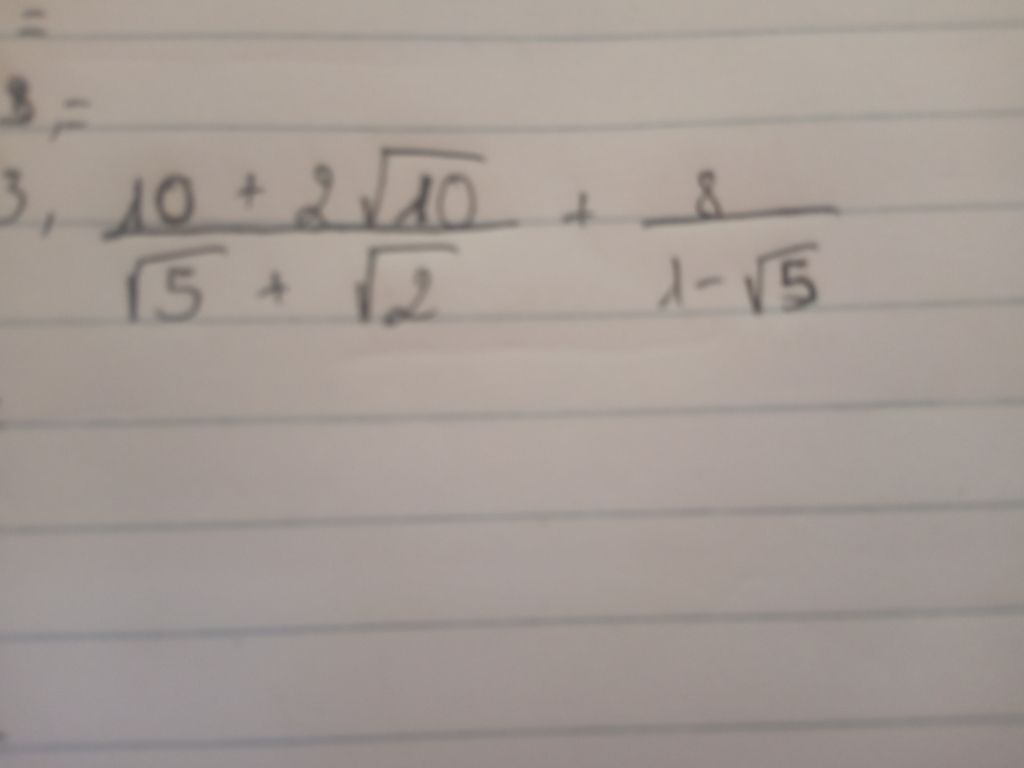 =
8,=
3, \frac{10 + 2\sqrt{10}}{\sqrt{5} + \sqrt{2}} + \frac{8}{1-\sqrt{5}}